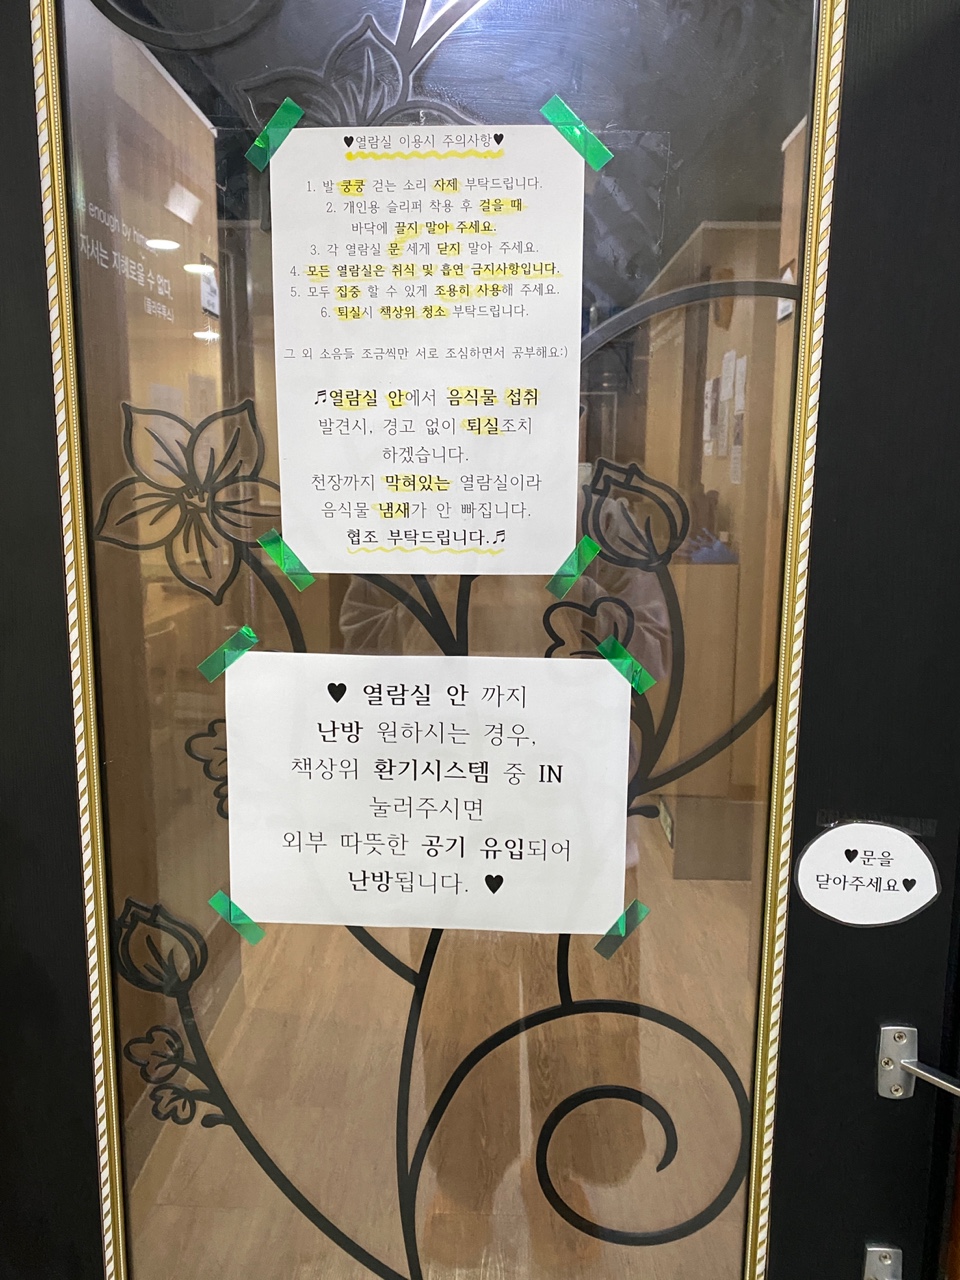 enough by him
자서는 지혜로울 수 없다.
♥열람실 이용시 주의사항♥
1. 발 쿵쿵 걷는 소리 자제 부탁드립니다.
2. 개인용 슬리퍼 착용 후 걸을 때
바닥에 끌지 말아 주세요.
3. 각 열람실 문 세게 닫지 말아 주세요.
4. 모든 열람실은 취식 및 흡연 금지사항입니다.
5. 모두 집중 할 수 있게 조용히 사용해 주세요.
6. 퇴실시 책상위 청소 부탁드립니다.
그 외 소음들 조금씩만 서로 조심하면서 공부해요:)
♬열람실 안에서 음식물 섭취
발견시, 경고 없이 퇴실조치
하겠습니다.
천장까지 막혀있는 열람실이라
음식물 냄새가 안 빠집니다.
협조 부탁드립니다.♬
♥ 열람실 안 까지
난방 원하시는 경우,
책상위 환기시스템 중 IN
눌러주시면
외부 따뜻한 공기 유입되어
난방됩니다. ♥
♥문을
닫아주세요♥